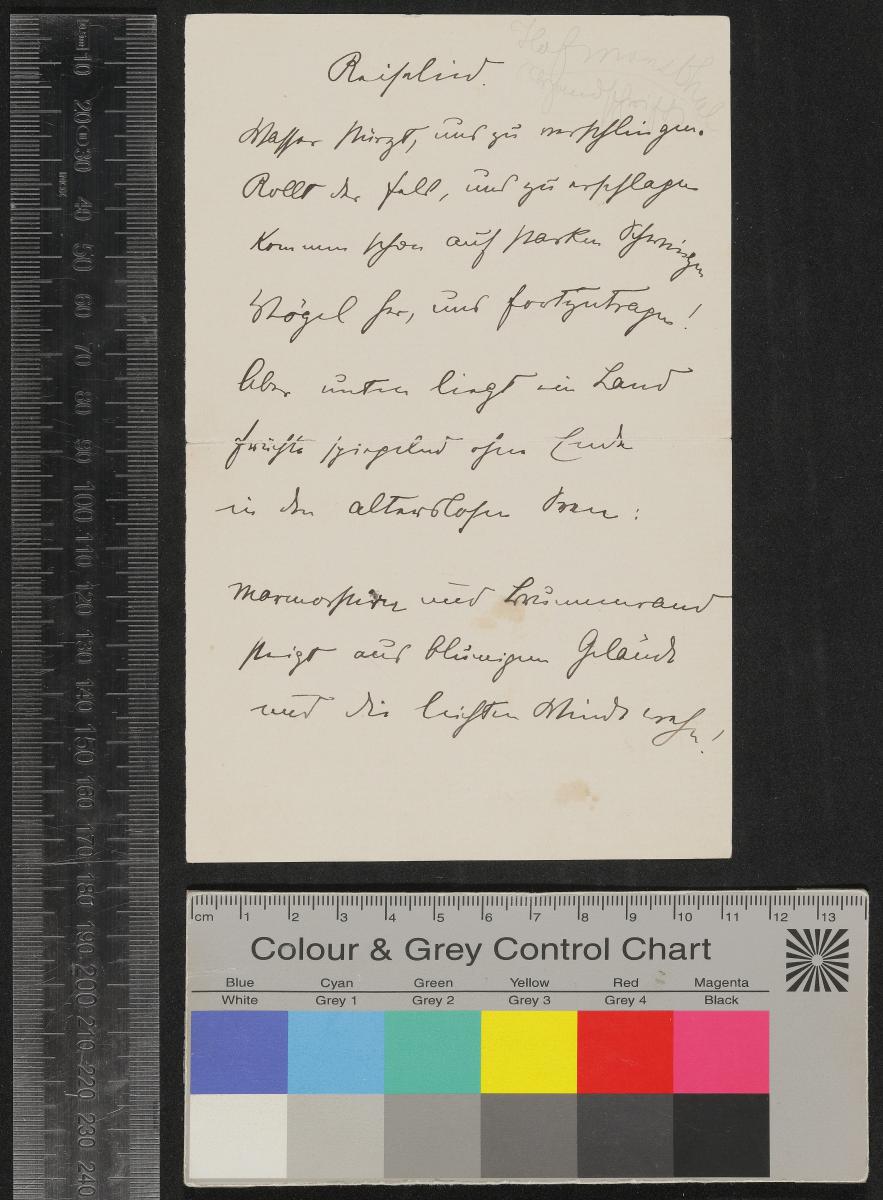 Hofmannsthal
Handschrift
Reiselied.
Wasser stürzt, uns zu verschlingen.
Rollt der Fels, uns zu erschlagen
Kommen schon auf starken Schwingen
Vögel her, uns fortzutragen!
Aber unten liegt ein Land
Früchte spiegelnd ohne Ende
in den alterslosen Seen:
Marmorstirn und Brunnenrand
steigt aus blumigen Gelände
und die leichten Winde wehn!
10 20 30 40 50 60 70 80 90 100 110 120 130 140 150 160 170 180 190 200 210 220 230 240
cm 1 2 3 4 5 6 7 8 9 10 11 12 13
Colour & Grey Control Chart
Blue Cyan Green Yellow Red Magenta
White Grey 1 Grey 2 Grey 3 Grey 4 Black